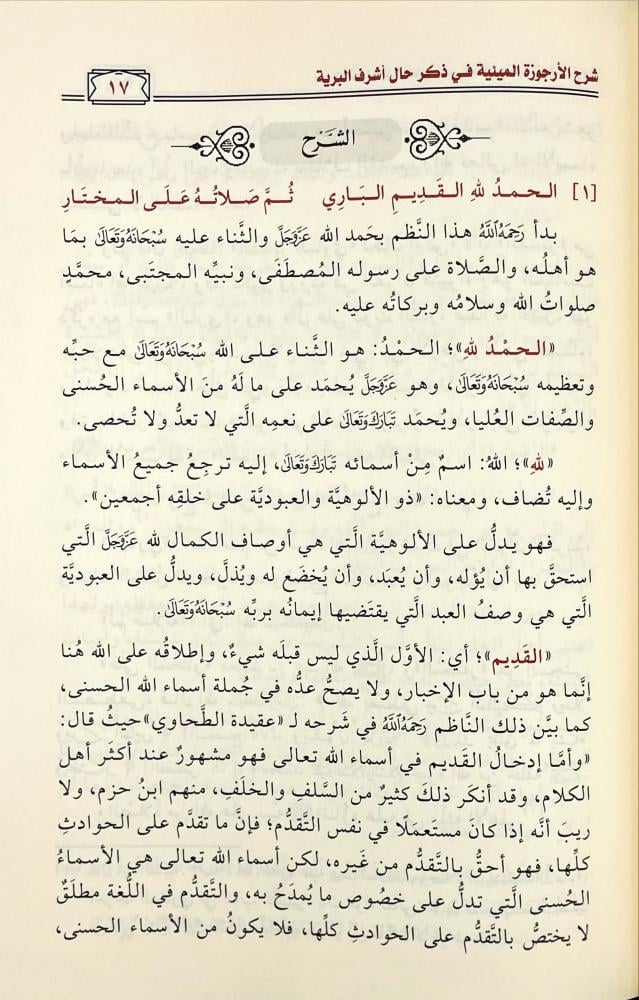 شرح الأرجوزة الميئية في ذكر حال أشرف البرية
١٧
الشَّرْح
[١] الـحـمـدُ للهِ الـقَـدِيـمِ الـبَـارِي ثُـمَّ صَـلَاتُـهُ عَـلَـى الـمـخـتَـارِ
بدأ رَحِمَهُ ٱللَّهُ هذا النَّظم بحَمد الله عَزَّوَجَلَّ والثَّناء عليه سُبْحَانَهُ وَتَعَالَى بمَا
هو أهلُه، والصَّلاة على رسوله المُصطَفَى، ونبيِّه المجتبى، محمَّدٍ
صلواتُ الله وسلامُه وبركاتُه عليه.
«الـحـمْـدُ للهِ»؛ الـحـمْـدُ: هـو الـثَّـنـاء عـلـى الله سُبْحَانَهُ وَتَعَالَى مـع حـبِّـه
وتعظيمه سُبْحَانَهُ وَتَعَالَى، وهو عَزَّوَجَلَّ يُحمَد على ما لَهُ منَ الأسماء الحُسنى
والصِّفات العُليا، ويُحمَد تَبَارَكَ وَتَعَالَى على نعمِه الَّتي لا تعدُّ ولا تُحصى.
«للهِ»؛ اللهُ: اسمٌ مِنْ أسمائه تَبَارَكَ وَتَعَالَى، إليه ترجِعُ جميعُ الأسماء
وإليه تُضاف، ومعناه: «ذو الألوهيَّة والعبوديَّة على خلقِه أجمعين».
فهو يدلُّ على الألوهيَّة الَّتي هي أوصاف الكمال لله عَزَّوَجَلَّ الَّتي
استحقَّ بها أن يُؤله، وأن يُعبَد، وأن يُخضَع له ويُذلَّ، ويدلُّ على العبوديَّة
الَّتي هي وصفُ العبد الَّتي يقتَضيها إيمانُه بربِّه سُبْحَانَهُ وَتَعَالَى.
«القَدِيم»؛ أي: الأوَّل الَّذي ليس قبلَه شيءٌ، وإطلاقُه على الله هُنا
إنَّما هو من باب الإخبار، ولا يصحُّ عدُّه في جُملة أسماء الله الحسنى،
كما بيَّن ذلك النَّاظم رَحِمَهُ ٱللَّهُ في شَرحه لـ «عقيدة الطَّحاوي» حيثُ قال:
«وأمَّا إدخالُ القديم في أسماء الله تعالى فهو مشهورٌ عند أكثَر أهل
الكلام، وقد أنكَر ذلكَ كثيرٌ من السَّلفِ والخَلفِ، منهم ابنُ حزم، ولا
ريبَ أنَّه إذا كانَ مستَعمَلًا في نفس التَّقدُّم؛ فإنَّ ما تقدَّم على الحوادثِ
كلِّها، فهو أحقُّ بالتَّقدُّم من غَيره، لكن أسماء الله تعالى هي الأسماءُ
الحُسنى الَّتي تدلُّ على خصُوص ما يُمدَحُ به، والتَّقدُّم في اللُّغة مطلَقٌ
لا يختصُّ بالتَّقدُّم على الحوادثِ كلِّها، فلا يكونُ من الأسماء الحسنى،